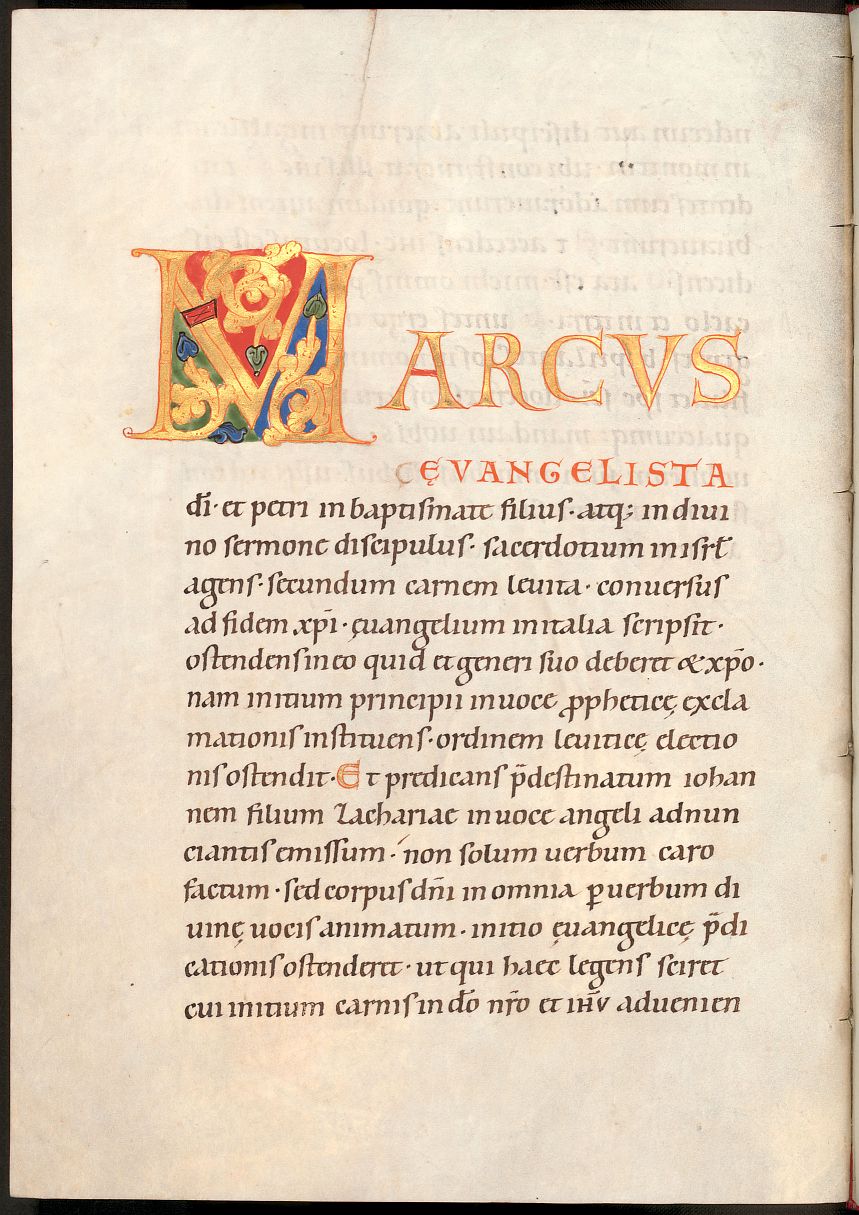 MARCVS
ĘVANGELISTA
dī · et petri in baptismate filius · atq; in divi
no sermone discipulus · sacerdotium in isrł
agens · secundum carnem levita · conversus
ad fidem xp̄i · ęuangelium in italia scripsit ·
ostendens in eo quid et generi suo deberet & xp̄o ·
nam initium principii in uoce ꝓpheticę excla
mationis instituens · ordinem leuiticę electio
nis ostendit · Et predicans p̄destinatum iohan
nem filium Zachariae in uoce angeli adnun
ciantis emissum · non solum uerbum caro
factum · sed corpus dn̄i in omnia ꝑ uerbum di
uinę uocis animatum · initio ęuangelicę p̄di
cationis ostenderet · ut qui haec legens sciret
cui initium carnis in dō nr̄o et ihv̄ aduenien